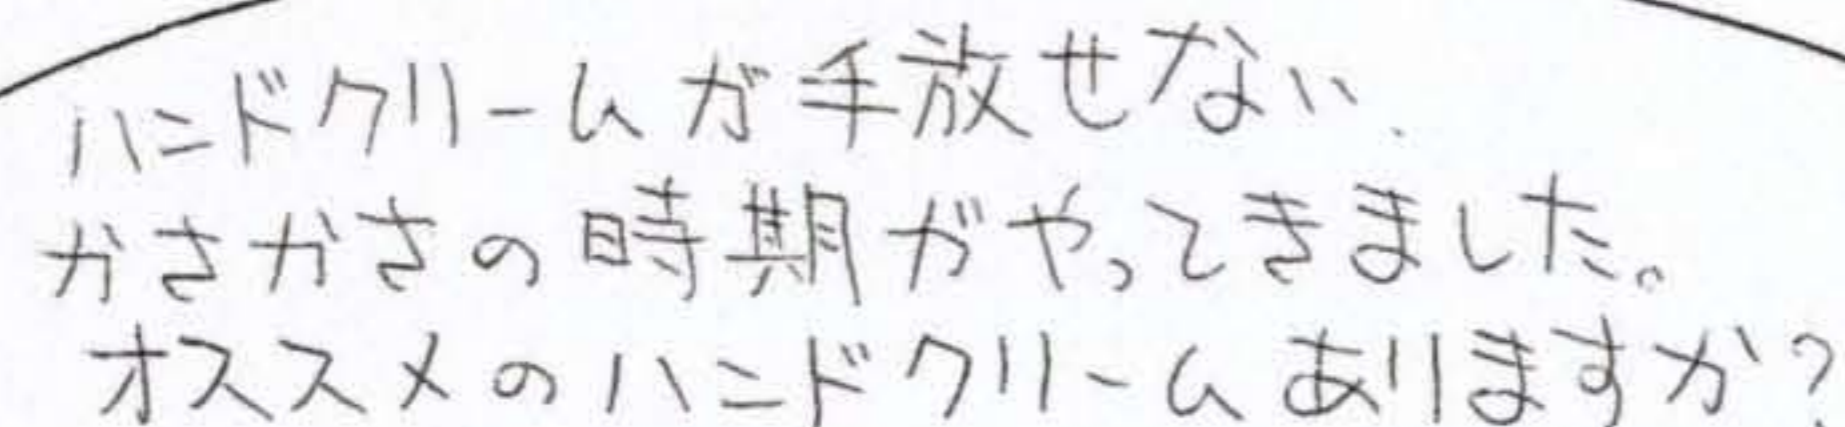 ハンドクリームが手放せない
かさかさの時期がやってきました。
オススメのハンドクリームありますか?